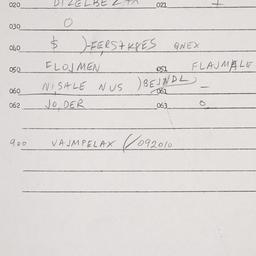 020 DIZELBEZTA 021 I
030 O
040 $ )-FERSTKPES GNEX
050 FLOJMEN 051 FLAJMALE
060 NISALE NUS )BEJNDL 061 –
062 JO, DER 063 O
900 VAJMPELAX (/092010